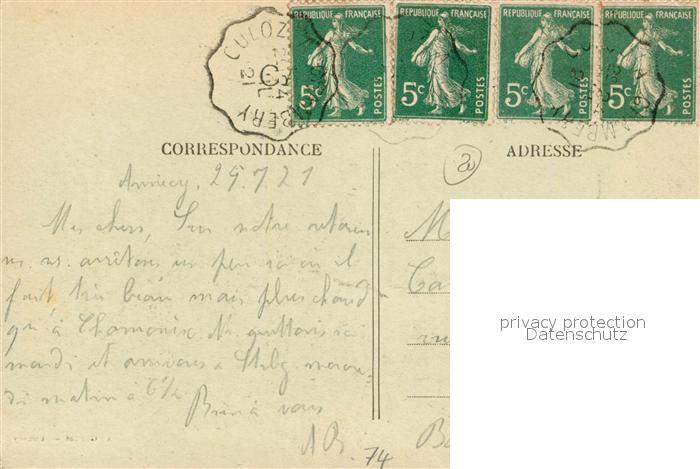 REPUBLIQUE FRANÇAISE REPUBLIQUE FRANÇAISE REPUBLIQUE FRANÇAISE REPUBLIQUE FRANÇAISE
5c POSTES 5c POSTES 5c POSTES 5c POSTES
CULOZ
21
CORRESPONDANCE ADRESSE
Annecy, 25.7.21
Mes chers, Sur notre retour
ns ns. arrêtons un peu ici où il
fait très beau mais plus chaud
qu'à Chamonix. Ns quittons ici
mardi et arrivons à Stbg mercre-
di matin à 6½
Bien à vous
74
privacy protection
Datenschutz